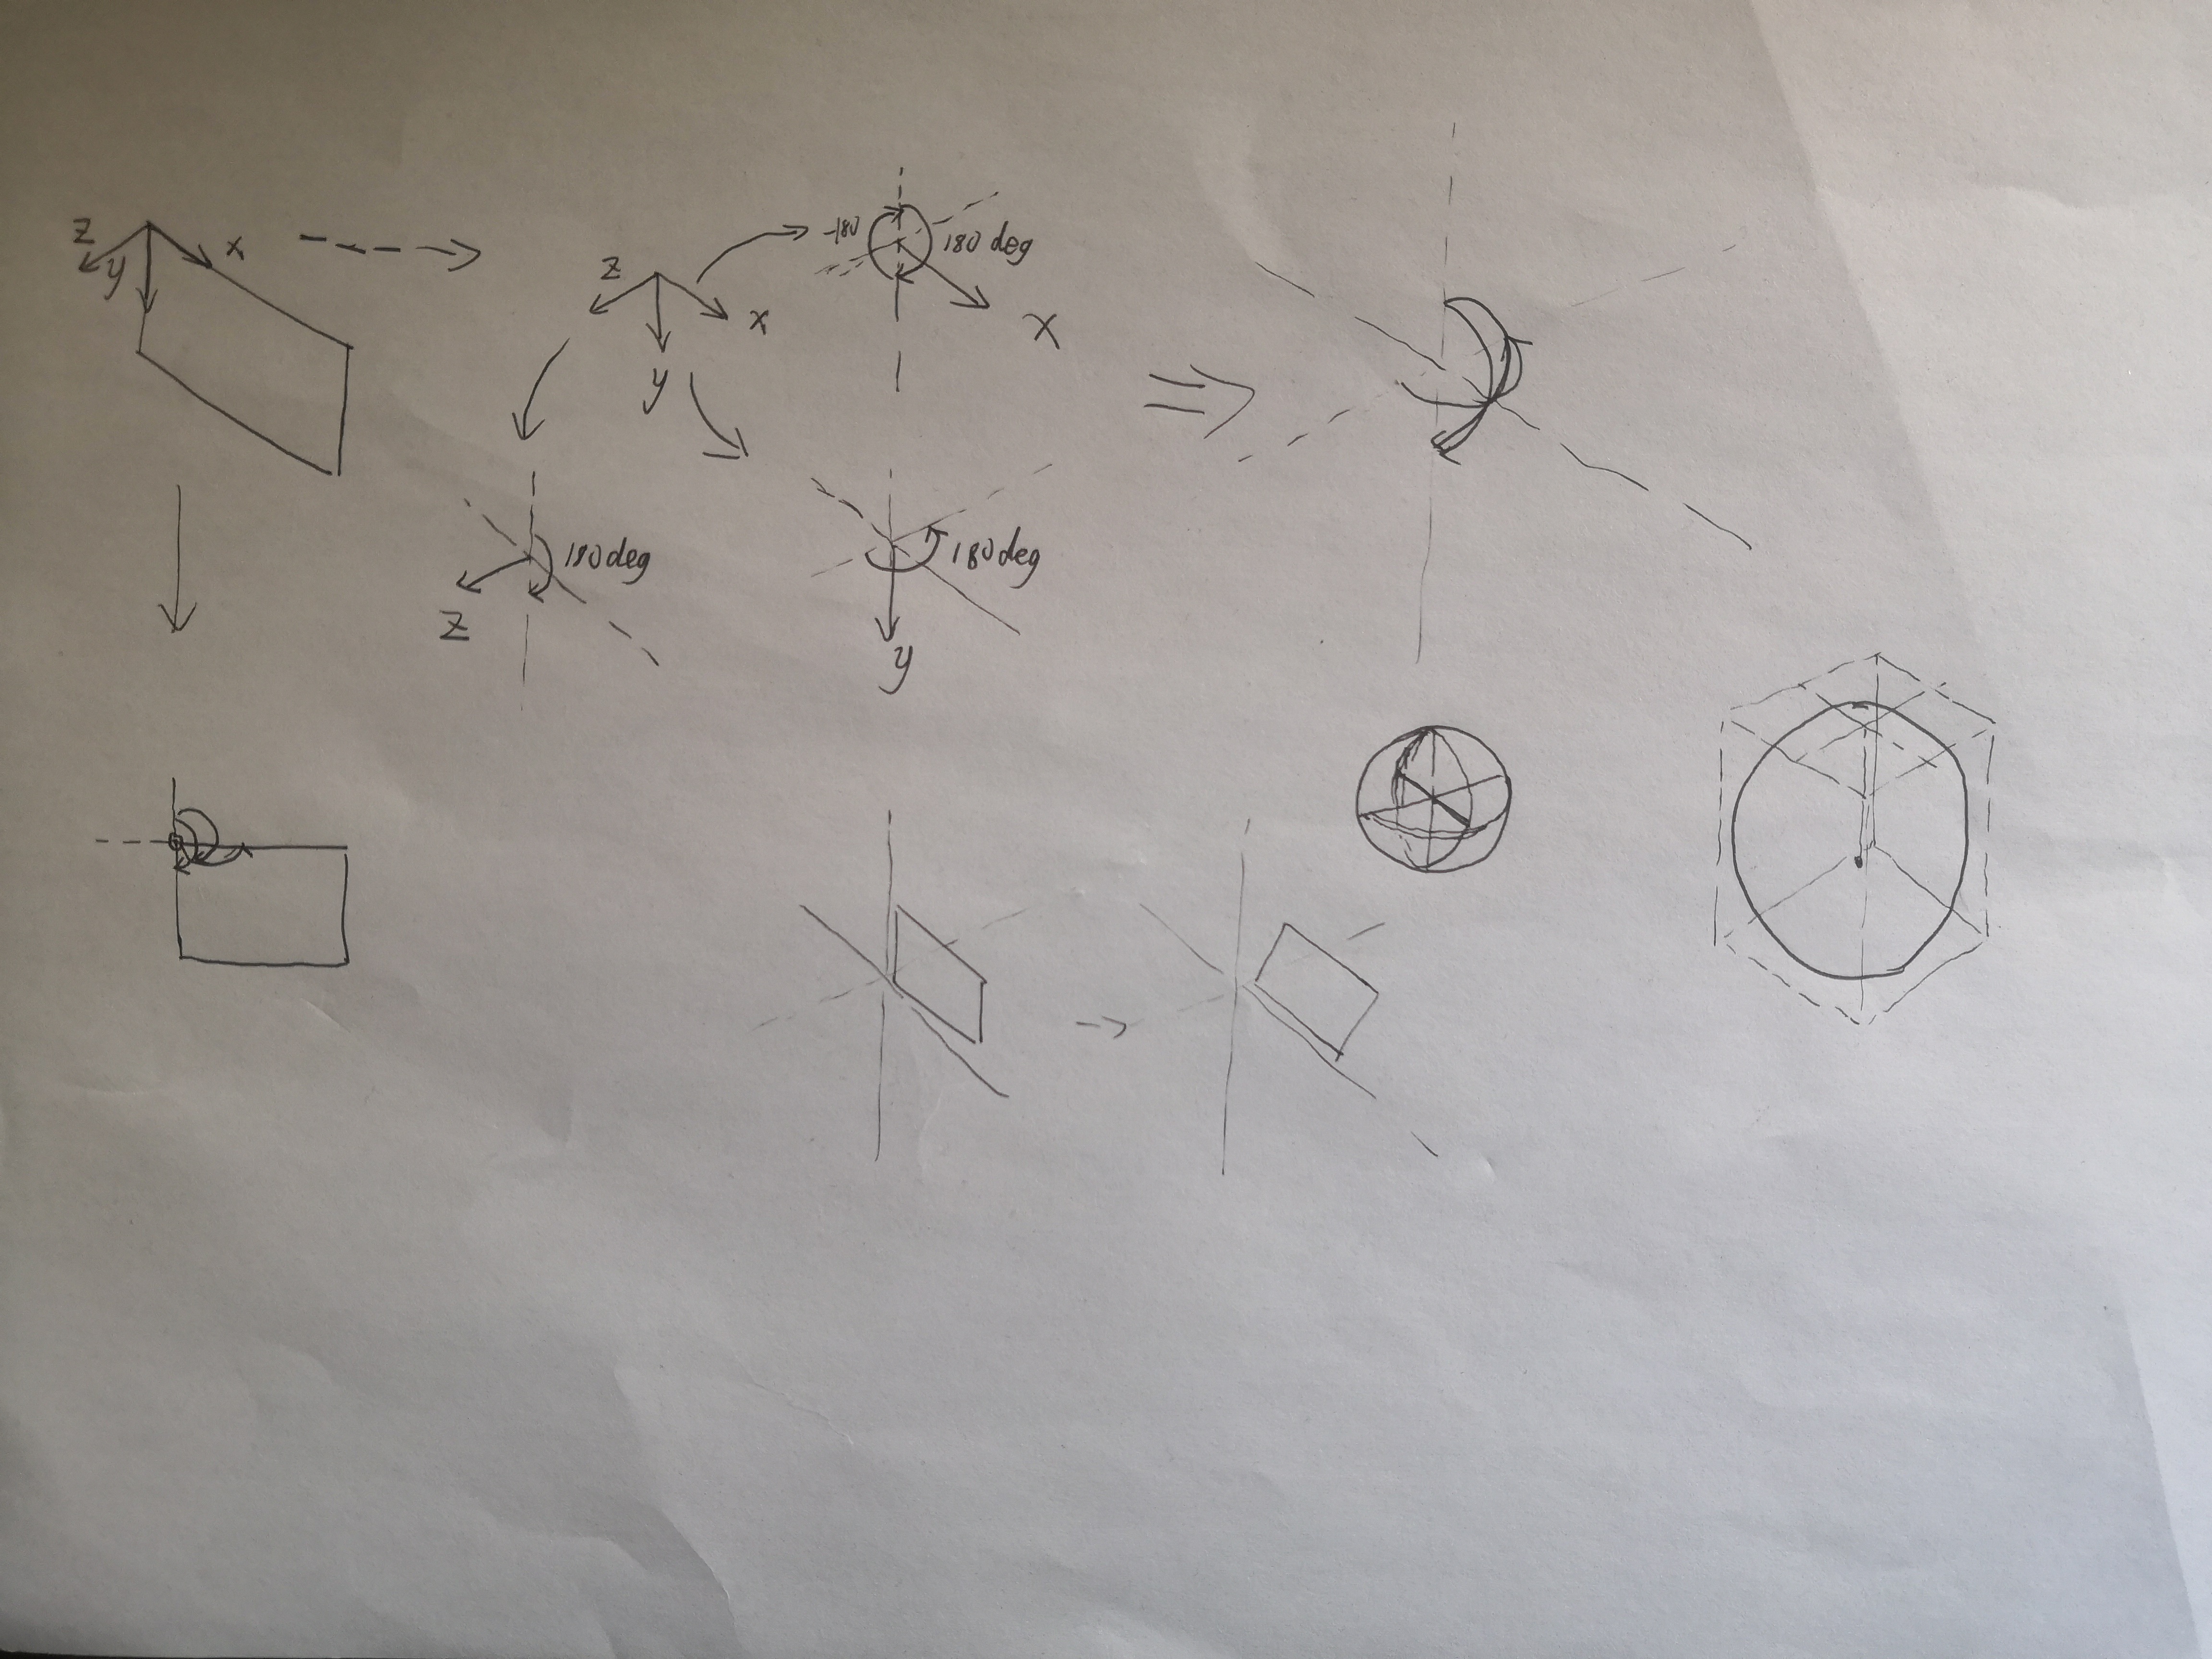 z
y
x
z
x
y
-180
180 deg
x
180deg
z
180deg
y